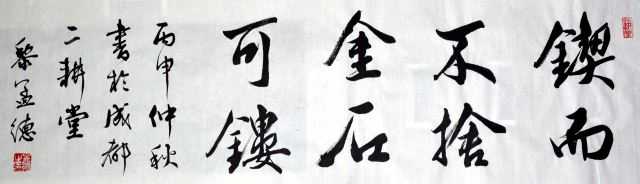 鍥而
不捨
金石
可鏤
丙申仲秋
書於成都
二耕堂
黎孟德